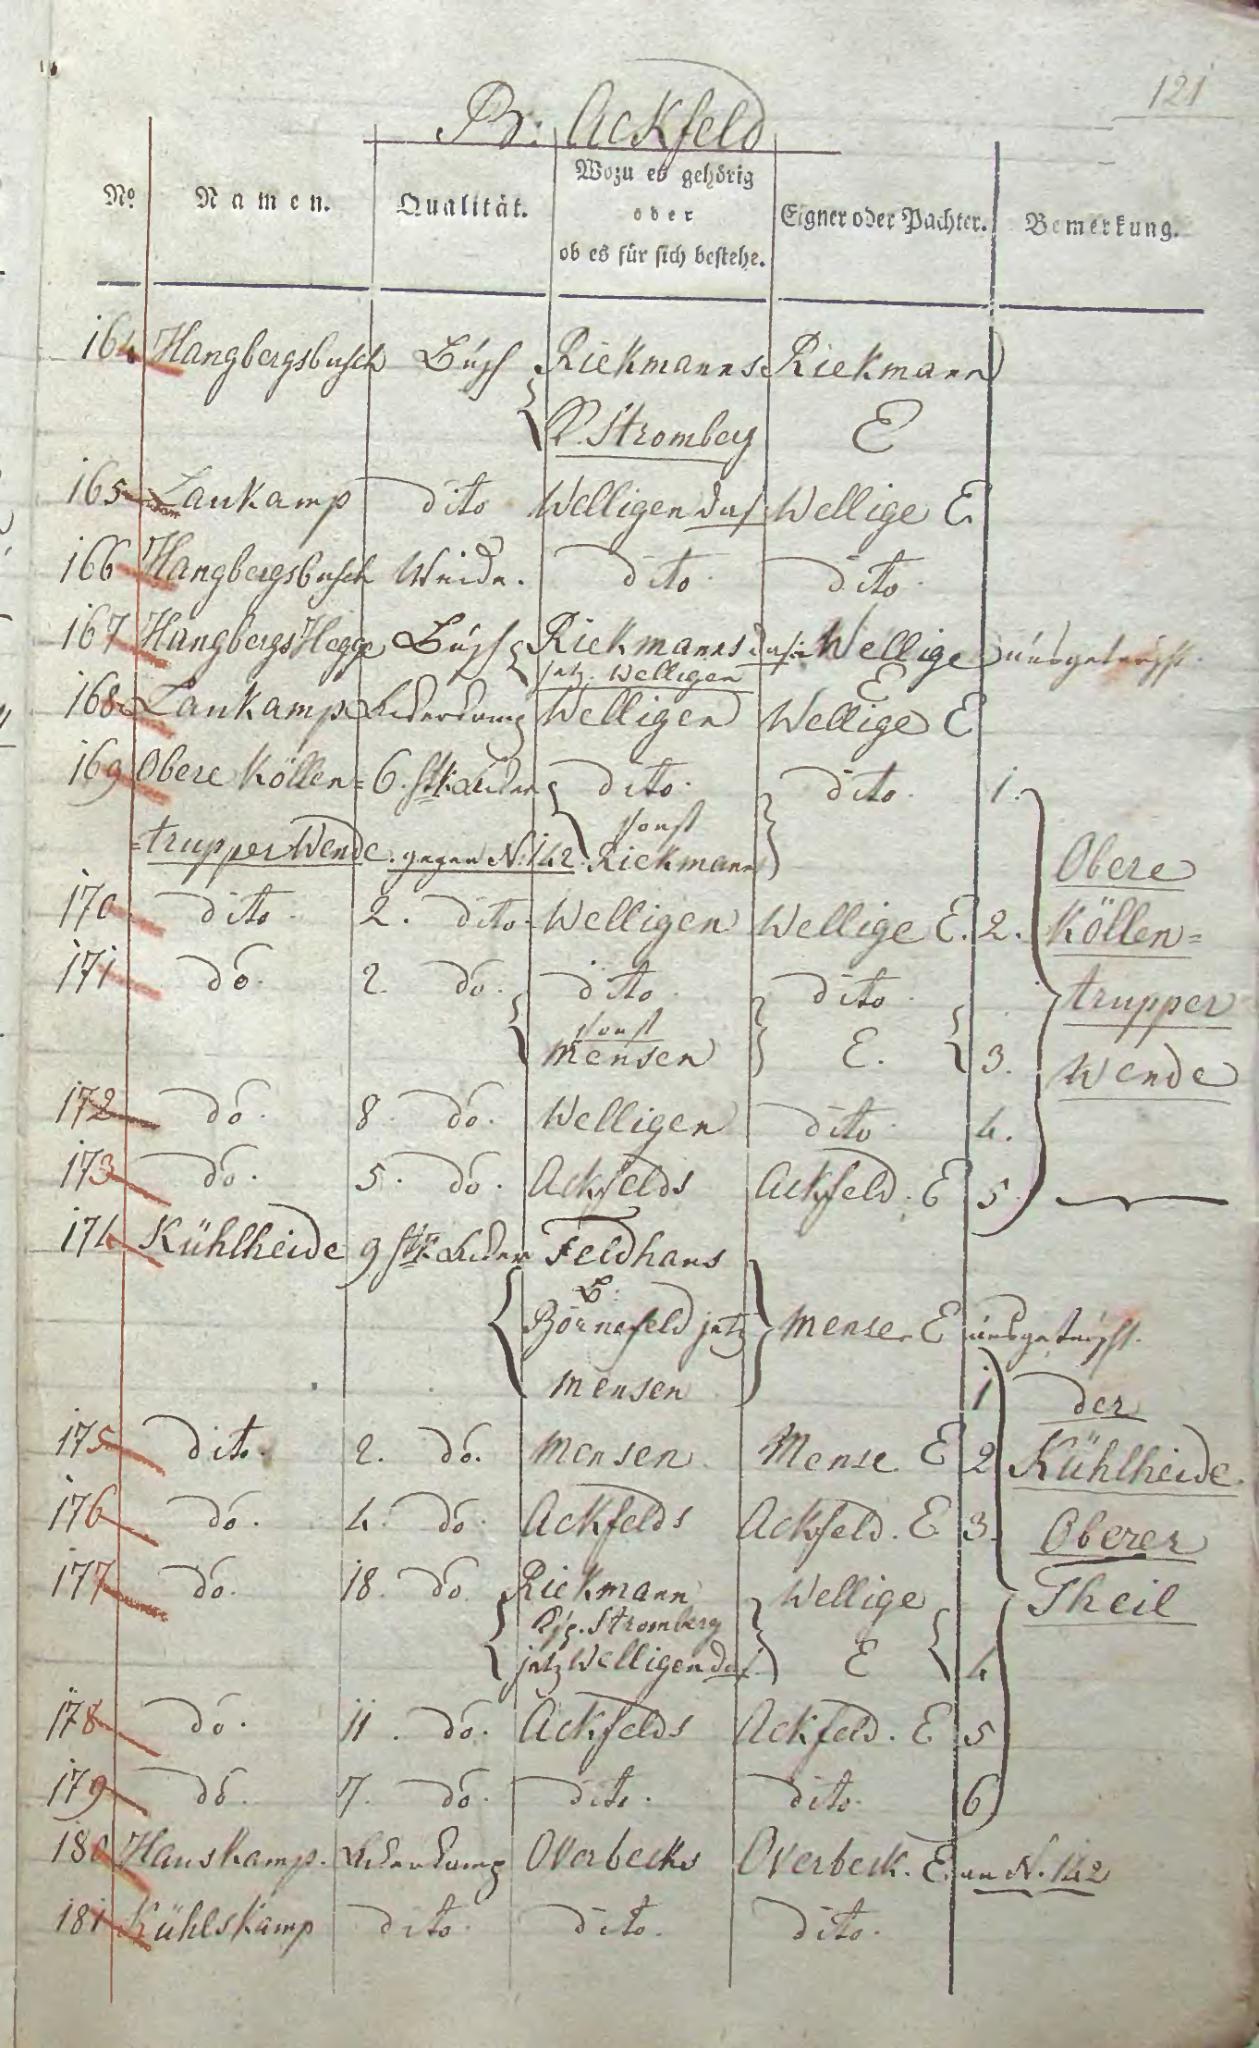 121
Br: Ackfeld
No. Namen. Qualität. Wozu es gehörig oder ob es für sich bestehe. Eigner oder Pachter. Bemerkung.
164 Hangbergsbusch Busch Riekmanns Riekmann
P. Stromberg E
165 Laukamp dito Welligen das. Wellige E
166 Hangbergsbusch Weide. dito dito
167 Hangbergs Hegge Busch Riekmanns Wellige
jetz. Welligen E
168 Laukamp Ackerkamp Welligen Wellige E
169 Obere Köllen= 6. Stk Aecker dito. dito. 1.
=trupper Wende. gegen N. 142. sonst Riekmann
Obere
170 dito 2. dito. Welligen Wellige E. 2. Köllen=
171 do. 2. do. dito. dito. trupper
sonst
Mensen E. 3. Wende
172 do. 8. do. Welligen dito 4.
173 do. 5. do. Ackfelds Ackfeld. E 5.
174 Kühlheide 9 Stk Aecker Feldhans
B.
Börnefeld jetz Mense E
Mensen 1 der
175 dito. 2. do. Mensen. Mense. E 2 Kühlheide.
176 do. 4. do. Ackfelds Ackfeld. E 3. Oberer
177 do. 18. do Riekmann Wellige Theil
Ksp. Stromberg
jetz Welligen das. E 4
178 do. 11. do. Ackfelds Ackfeld. E 5
179 do. 7. do. dito. dito. 6
180 Hauskamp. Ackerkamp Overbecks Overbeck. E. an N. 142
181 Kühlskamp dito. dito. dito.